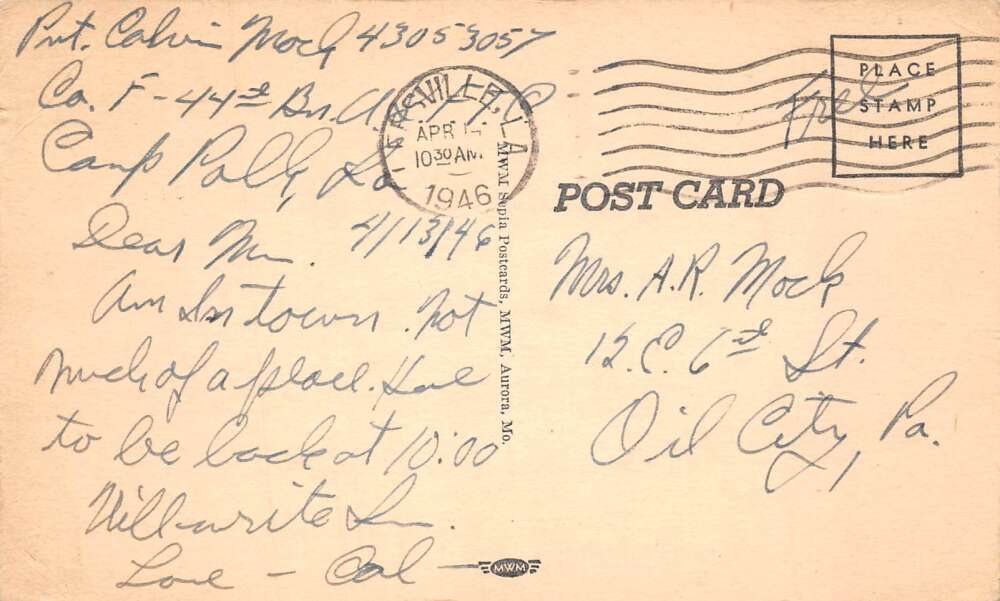 Pvt. Calvin Mock 43053057
Co. F - 44th Bn. A
Camp Polk, La
4/13/46
Dear M
Am In town. Not
much of a place. Have
to be back at 10:00
Will write
Love - Cal
LEESVILLE, LA
APR 14
10 30 AM
1946
MWM Sepia Postcards, MWM, Aurora, Mo.
MWM
Free
PLACE
STAMP
HERE
POST CARD
Mrs. A.R. Mock
12 E. 6th St.
Oil City, Pa.